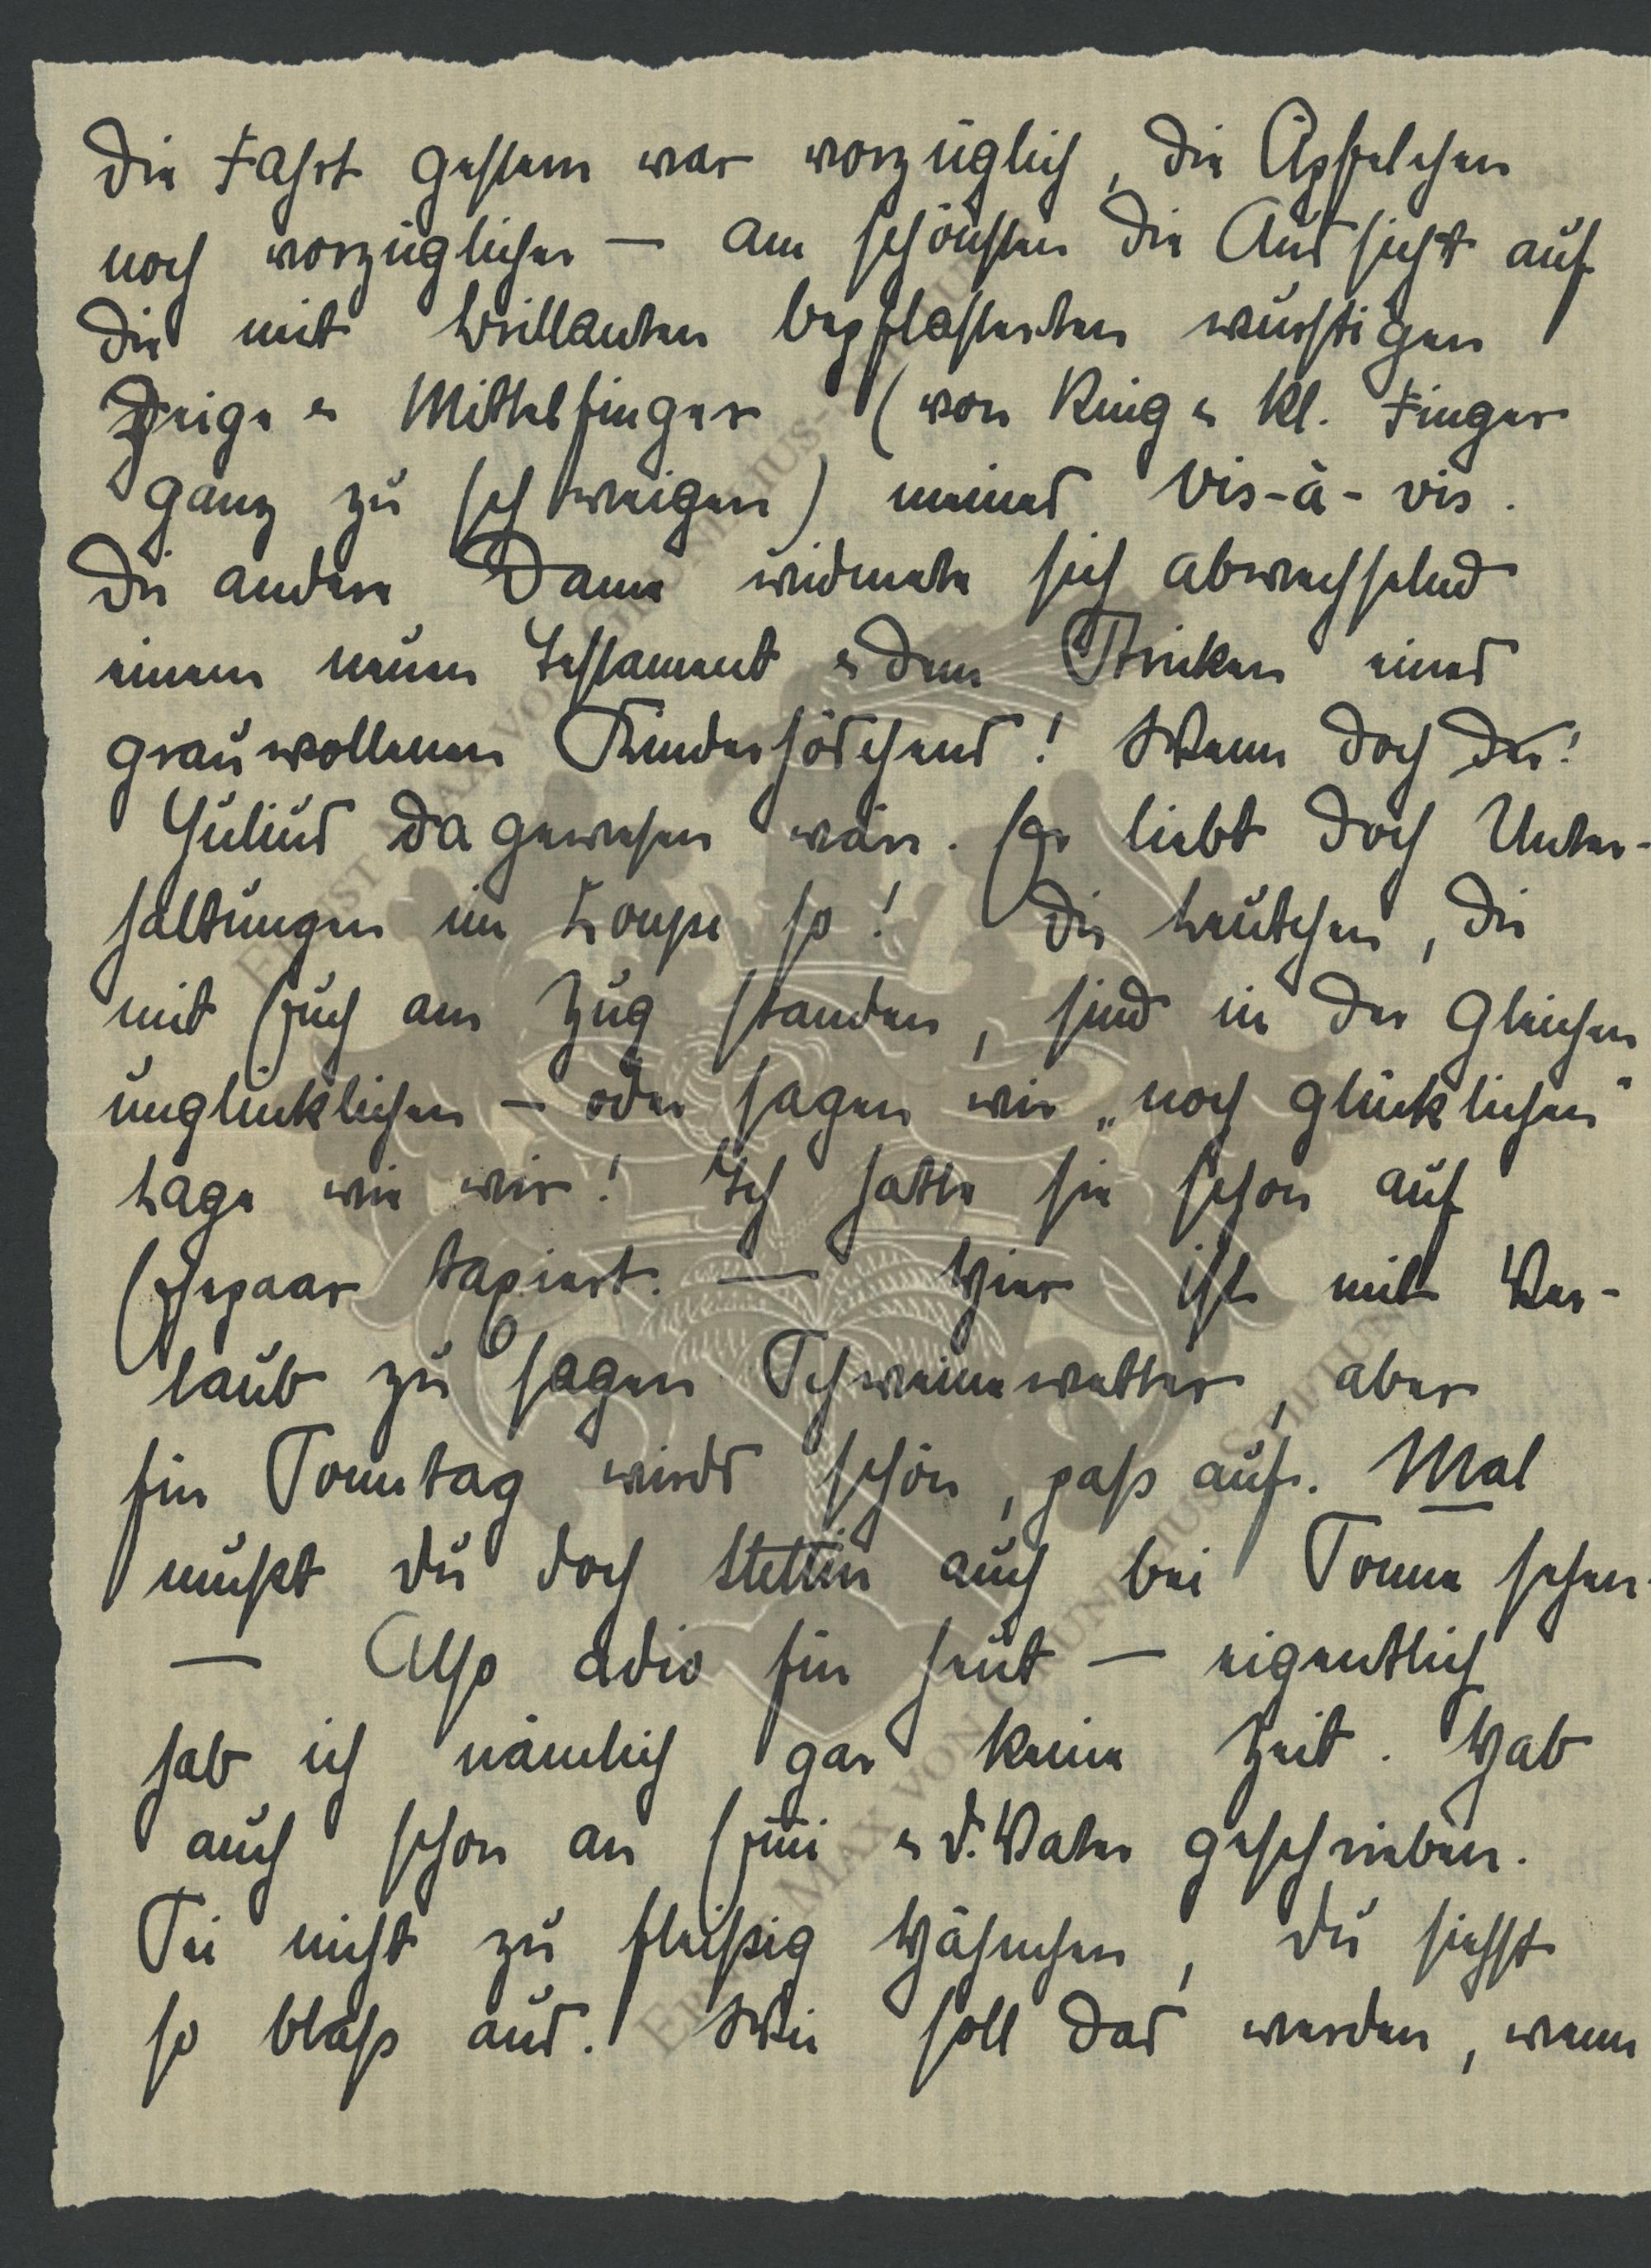 Die Fahrt gestern war vorzüglich, die Äpfelchen
noch vorzüglicher — am schönsten die Aussicht auf
die mit Brillanten bepflasterten wurstigen
Zeige u Mittelfinger (von Ring u kl. Finger
ganz zu schweigen) meines vis-à-vis.
Die andere Dame widmete sich abwechselnd
einem neuen Testament u dem Stricken eines
grauwollenen Kinderhöschens! Wenn doch der
Julius da gewesen wär. Er liebt doch Unter-
haltungen im Koupe so! Die Leutchen, die
mit Euch am Zug standen, sind in der gleichen
unglücklichen — oder sagen wir „noch glücklichen"
Lage wie wir! Ich hatte sie schon auf
Ehepaar tapiert. — Hier ist mit Ver-
laub zu sagen Schweinewetter, aber
für Sonntag wirds schön, paß auf. Mal
mußt du doch Stettin auch bei Sonne sehen.
— Also adio für heut — eigentlich
hab ich nämlich gar keine Zeit. Hab
auch schon an Emi u d. Vater geschrieben.
Sei nicht zu fleißig Hähnchen, du siehst
so blaß aus. Wie soll das werden, wenn
ERNST MAX VON GRUNELIUS-STIFTUNG
ERNST MAX VON GRUNELIUS-STIFTUNG